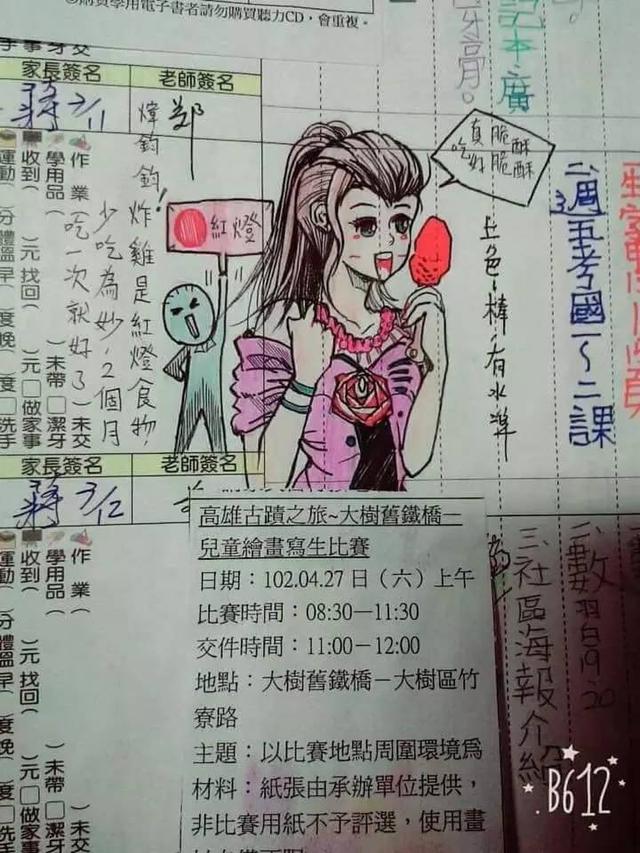 ⊙購買學用電子書者請勿購買聽力CD，會重複。
牙膏。
記本、廣
家長簽名
老師簽名
蔣 3/11
鄭
煒鈞鈞！炸雞是紅燈食物！
少吃為妙，2個月
吃一次就好了
紅燈
真脆酥
吃好脆酥
上色很棒，有水準
二、週五考國1～2課
作業（
）未交
學用品（
）未帶
□潔牙
收到（
）元找回（
）元
□做家事
運動（
）分
體溫早（
）度晚（
）度
□洗手
家長簽名
老師簽名
蔣 3/12
高雄古蹟之旅~大樹舊鐵橋—
兒童繪畫寫生比賽
日期：102.04.27 日（六）上午
比賽時間：08:30—11:30
交件時間：11:00－12:00
地點：大樹舊鐵橋－大樹區竹
寮路
主題：以比賽地點周圍環境為
材料：紙張由承辦單位提供，
非比賽用紙不予評選，使用畫
二、數習白19.20
三、社區海報介紹
作業（
）未交
學用品（
）未帶
□潔牙
收到（
）元找回（
）元
□做家事
運動（
體溫早
B612